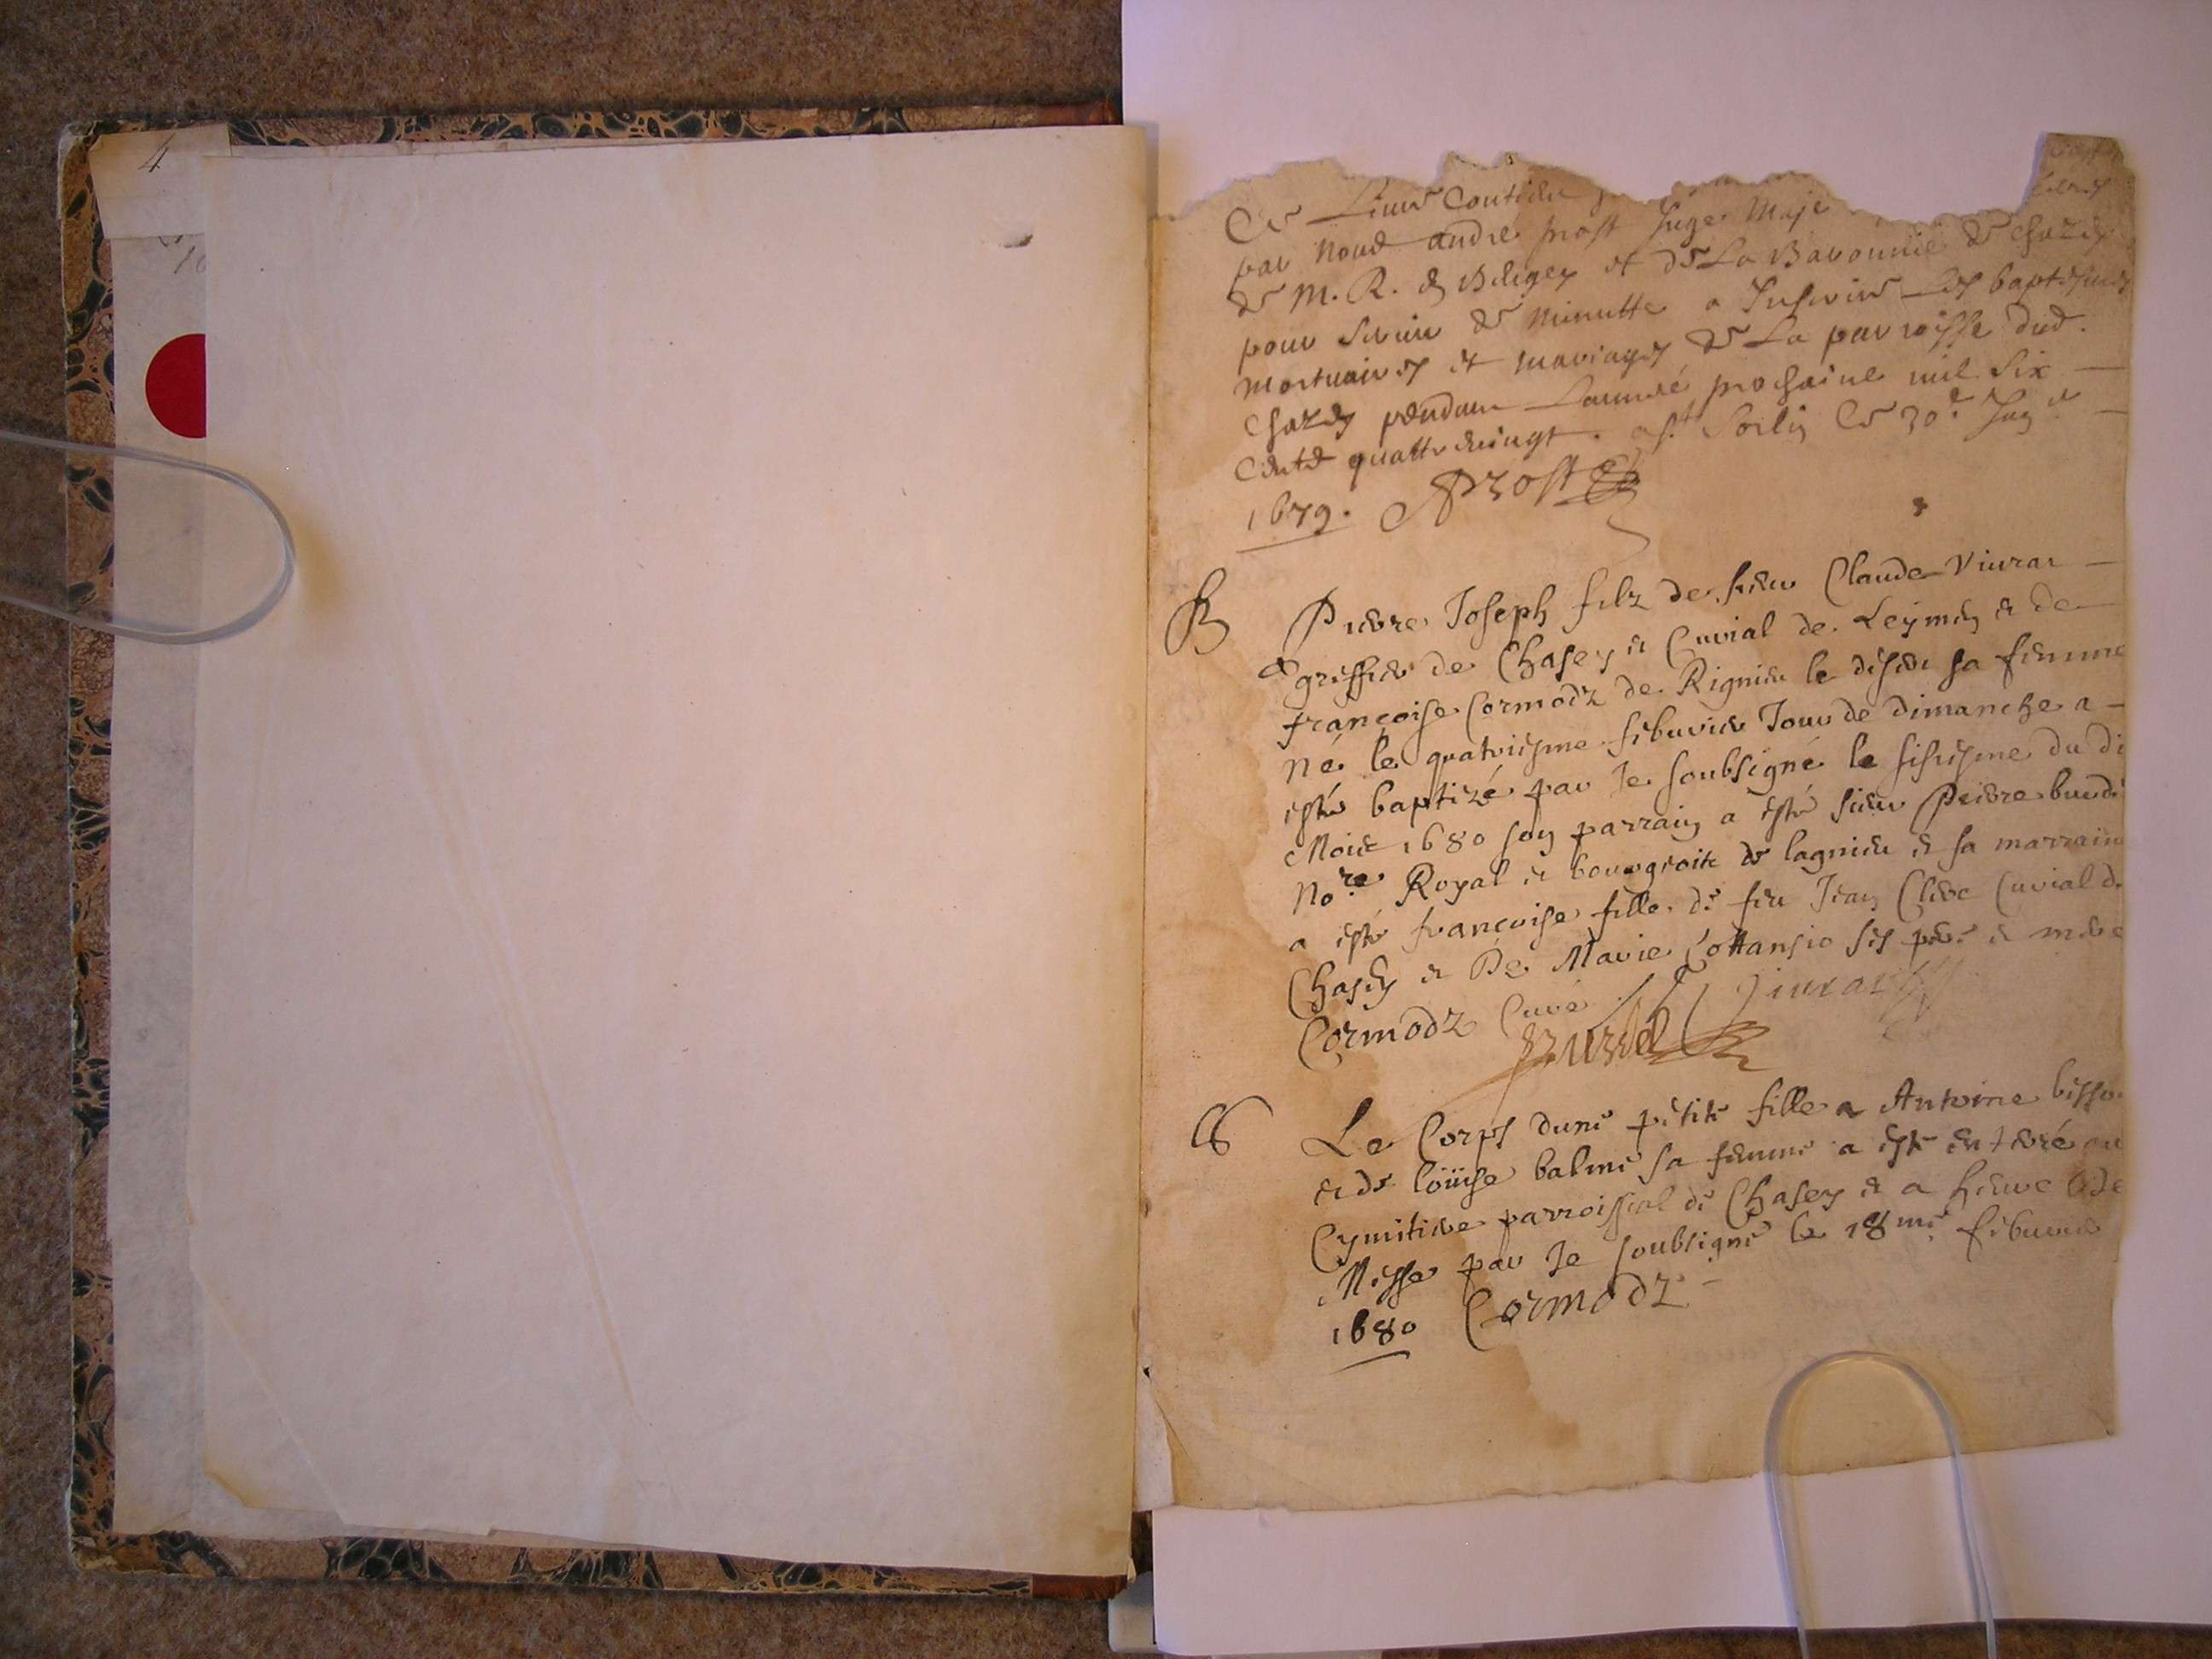 4
Ce Livre Contien
par nous andré prost Juge Maje
de M. R. de Beligey et de La Baronnie de Chazey
pour servir de minutte a Inscrire Les baptesmes
mortuaires et mariages de La parroisse dud.
Chazey pendant L'année prochaine mil six
cents quattre vingt. Ce 30e
1679. Prost
B Pierre Joseph filz de sieur Claude Viurar
greffier de Chasey et Curial de Leymen et de
françoise Cormodz de Rignieu le desert sa femme
né le quatriesme febvrier Jour de dimanche a
esté baptizé par Je soubsigné le sisiesme du di
Mois 1680 son parrain a esté sieur Pierre
No.re Royal et bourgeois de lagnieu et sa marraine
a esté françoise fille de feu Jean Curial de
Chasey et De Marie ses pere et mere
Cormodz Curé Viurar
Le Corps d'une petite fille a Antoine
et de loüise balme sa femme a esté enterré au
Cymitiere parroissial de Chasey et a heure de
Messe par Je soubsigné le 18me febvrier
1680 Cormodz